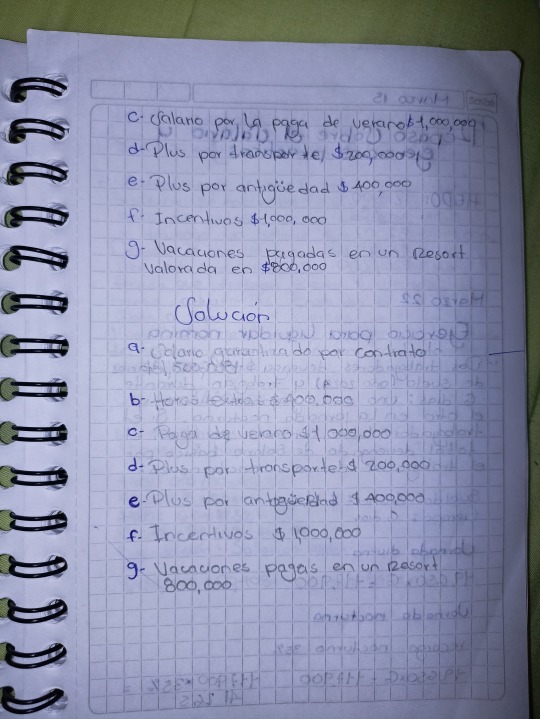 c- Salario por la paga de verano $1,000,000
d- Plus por transporte $200,000
e- Plus por antigüedad $400,000
f- Incentivos $1,000,000
g- Vacaciones pagadas en un Resort
Valorada en $800,000
Solución
a- Salario garantizado por contrato
$1,500,000
b- Horas extras $400,000
c- Paga de verano $1,000,000
d- Plus por transporte $200,000
e- Plus por antigüedad $400,000
f- Incentivos $1,000,000
g- Vacaciones pagas en un Resort
800,000